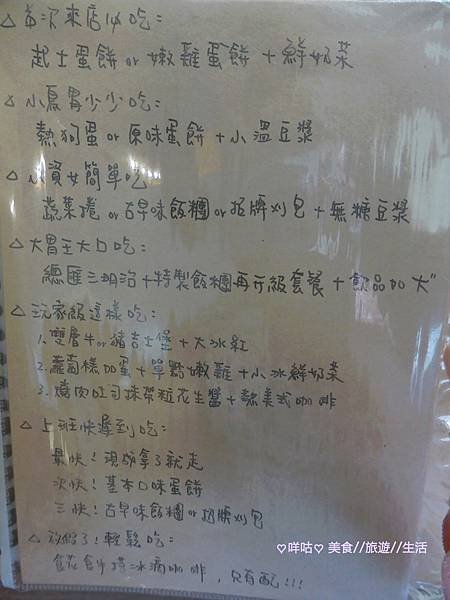 △首次來店必吃：
起士蛋餅or嫩雞蛋餅+鮮奶茶
△小鳥胃少少吃：
熱狗蛋or原味蛋餅+小溫豆漿
△小資女簡單吃：
蔬菜捲or古早味飯糰or招牌刈包+無糖豆漿
△大胃王大口吃：
總匯三明治+特製飯糰再升級套餐+飲品加"大"
△玩家級這樣吃：
1.雙層牛or豬吉士堡+大冰紅
2.蘿蔔糕加蛋+單點嫩雞+小冰鮮奶茶
3.燒肉吐司抹帶粒花生醬+熱美式咖啡
△上班快遲到吃：
最快！現場拿了就走
次快！基本口味蛋餅
三快！古早味飯糰or招牌刈包
△放假了！輕鬆吃：
餅搭冰滴咖啡，只有配!!!
♡咩咕♡ 美食//旅遊//生活